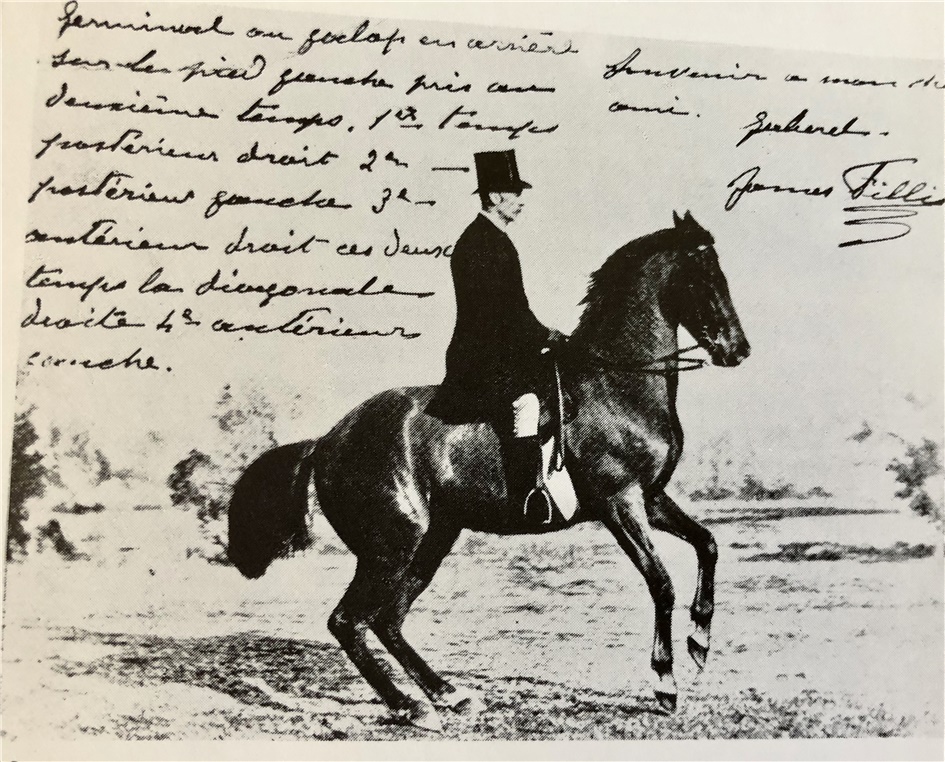 Germinal au galop en arrière
sur le pied gauche pris au
deuxième temps. 1er temps
postérieur droit 2e —
postérieur gauche 3e —
antérieur droit ces deux
temps la diagonale
droite 4e antérieur
gauche.
Souvenir a mon
ami.
James Fillis